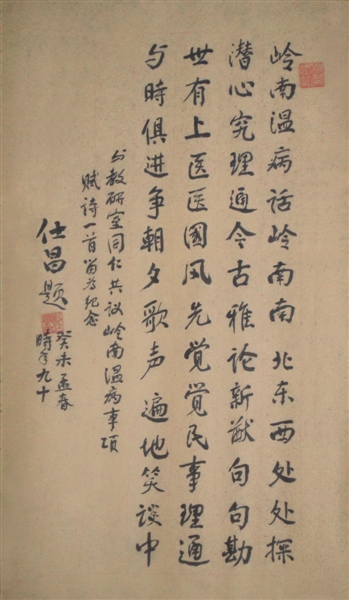 岭南温病话岭南南北东西处处探
潜心究理通今古雅论新猷句句勘
世有上医医國风先觉觉民事理通
与時俱进争朝夕歌声遍地笑谈中
与教研室同仁共议岭南温病事项
赋诗一首留为纪念
仕昌题
癸未孟春
時年九十